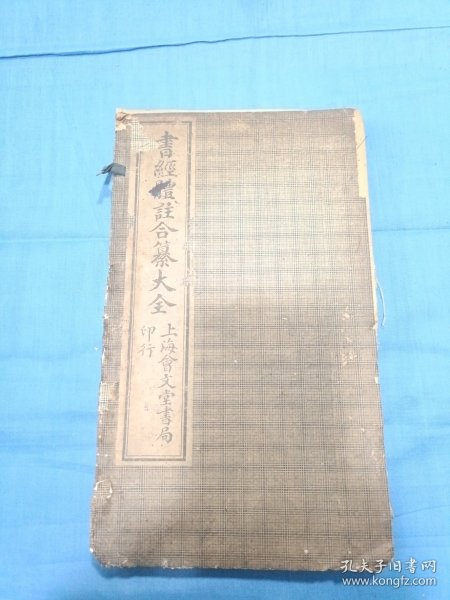 書經體註合纂大全
上海會文堂書局
印行
孔夫子旧书网
www.kongfz.com